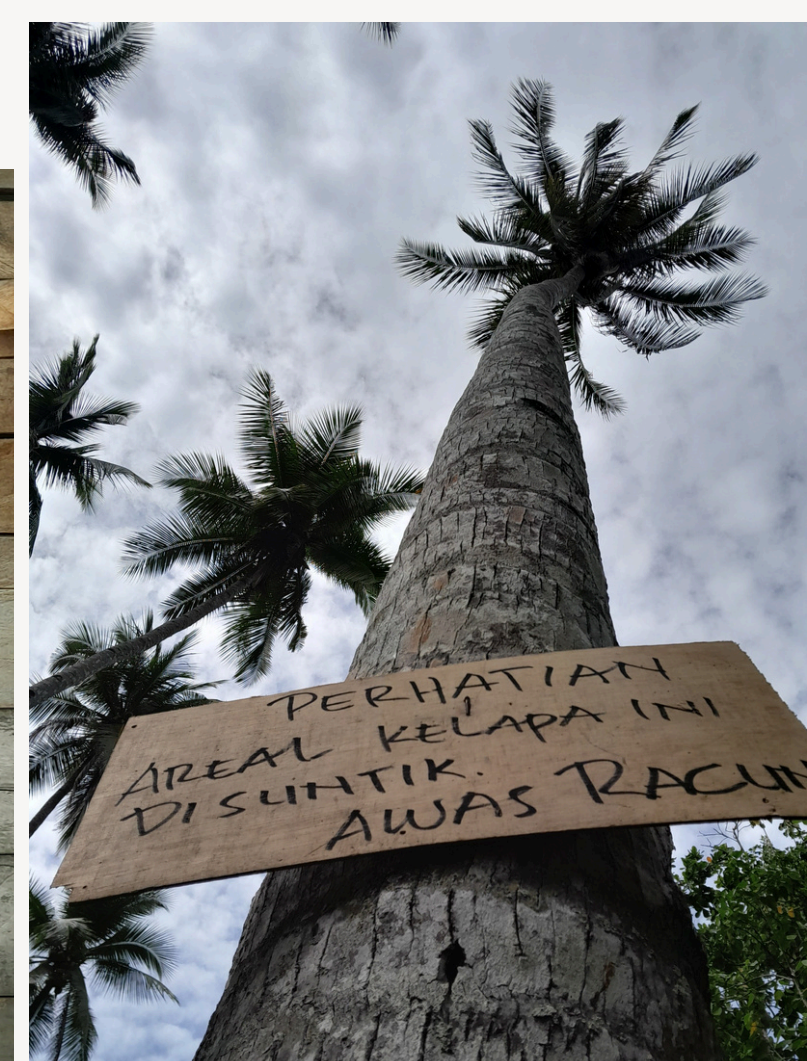 PERHATIAN
AREAL KELAPA INI
DISUNTIK.
AWAS RACUN